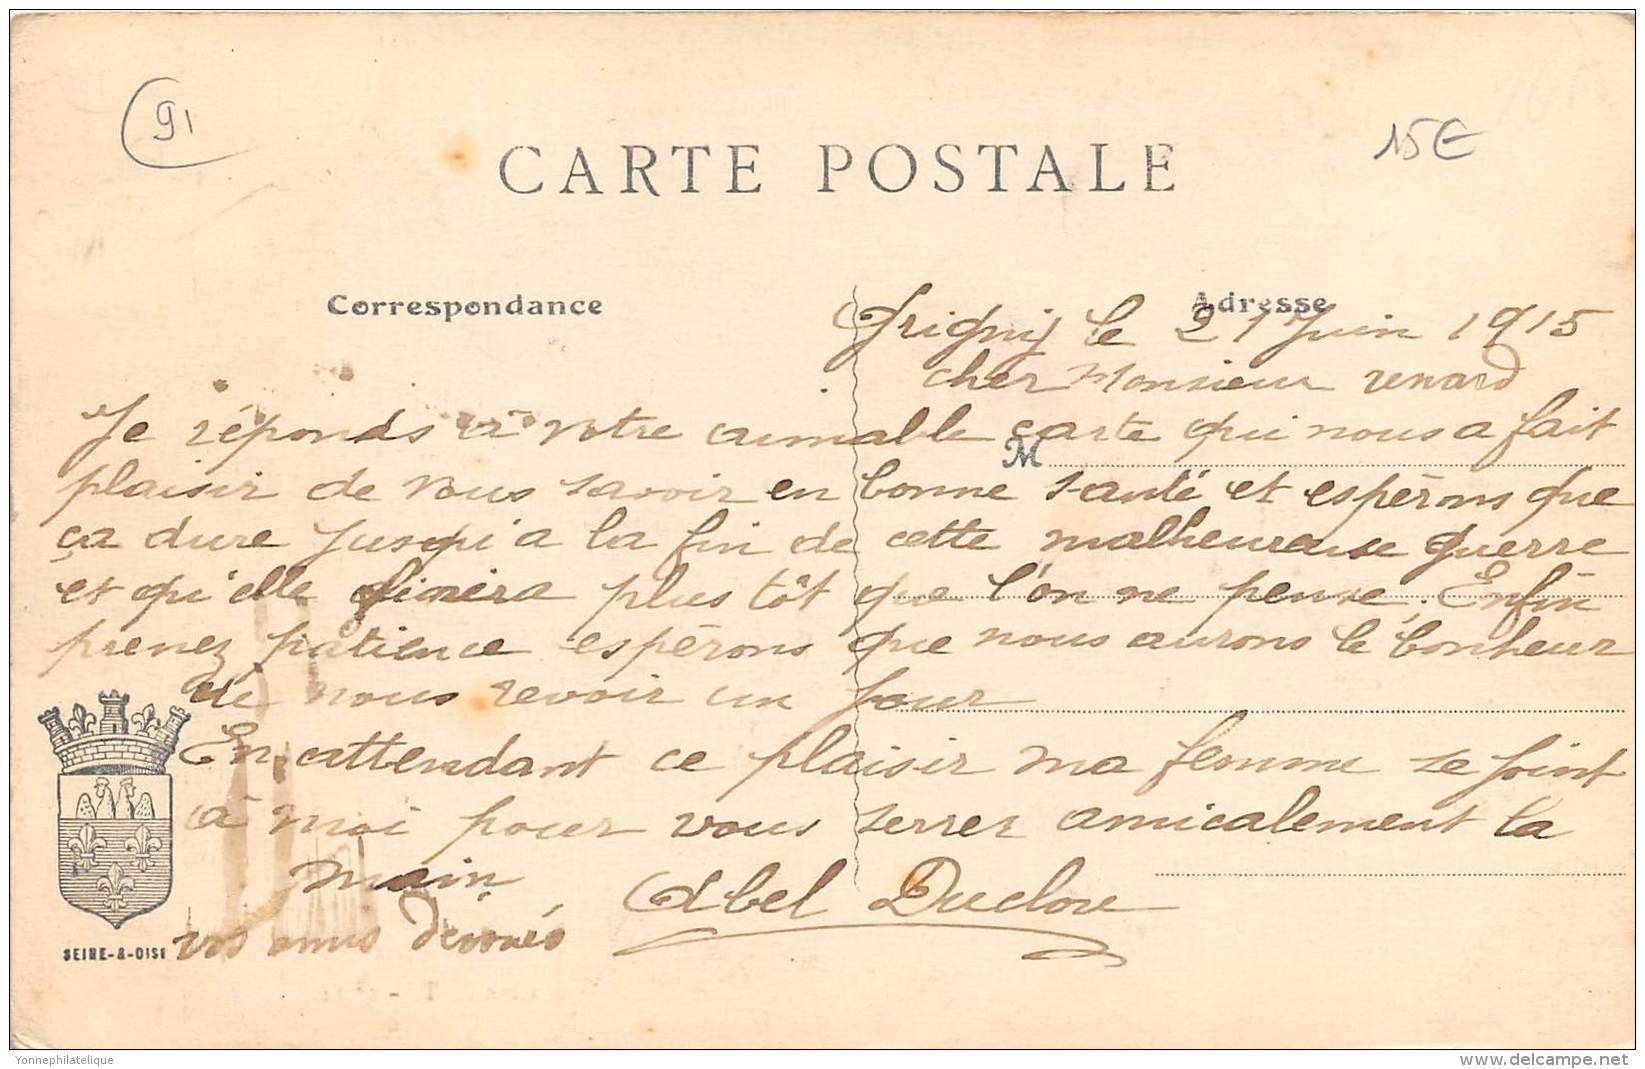 91
15€
CARTE POSTALE
Correspondance
Adresse
Grigny le 21 Juin 1915
cher Monsieur renard
Je réponds à votre aimable carte qui nous a fait
M
plaisir de vous savoir en bonne santé et espérons que
ça dure jusqu'à la fin de cette malheureuse guerre
et qu'elle finira plus tôt que l'on ne pense. Enfin
prenez patience espérons que nous aurons le bonheur
de nous revoir un jour
En attendant ce plaisir ma femme se joint
à moi pour vous serrer amicalement la
main
Abel Duclou
vos amis dévoués
SEINE-&-OISE
Yonnephilatelique
delcampe.net